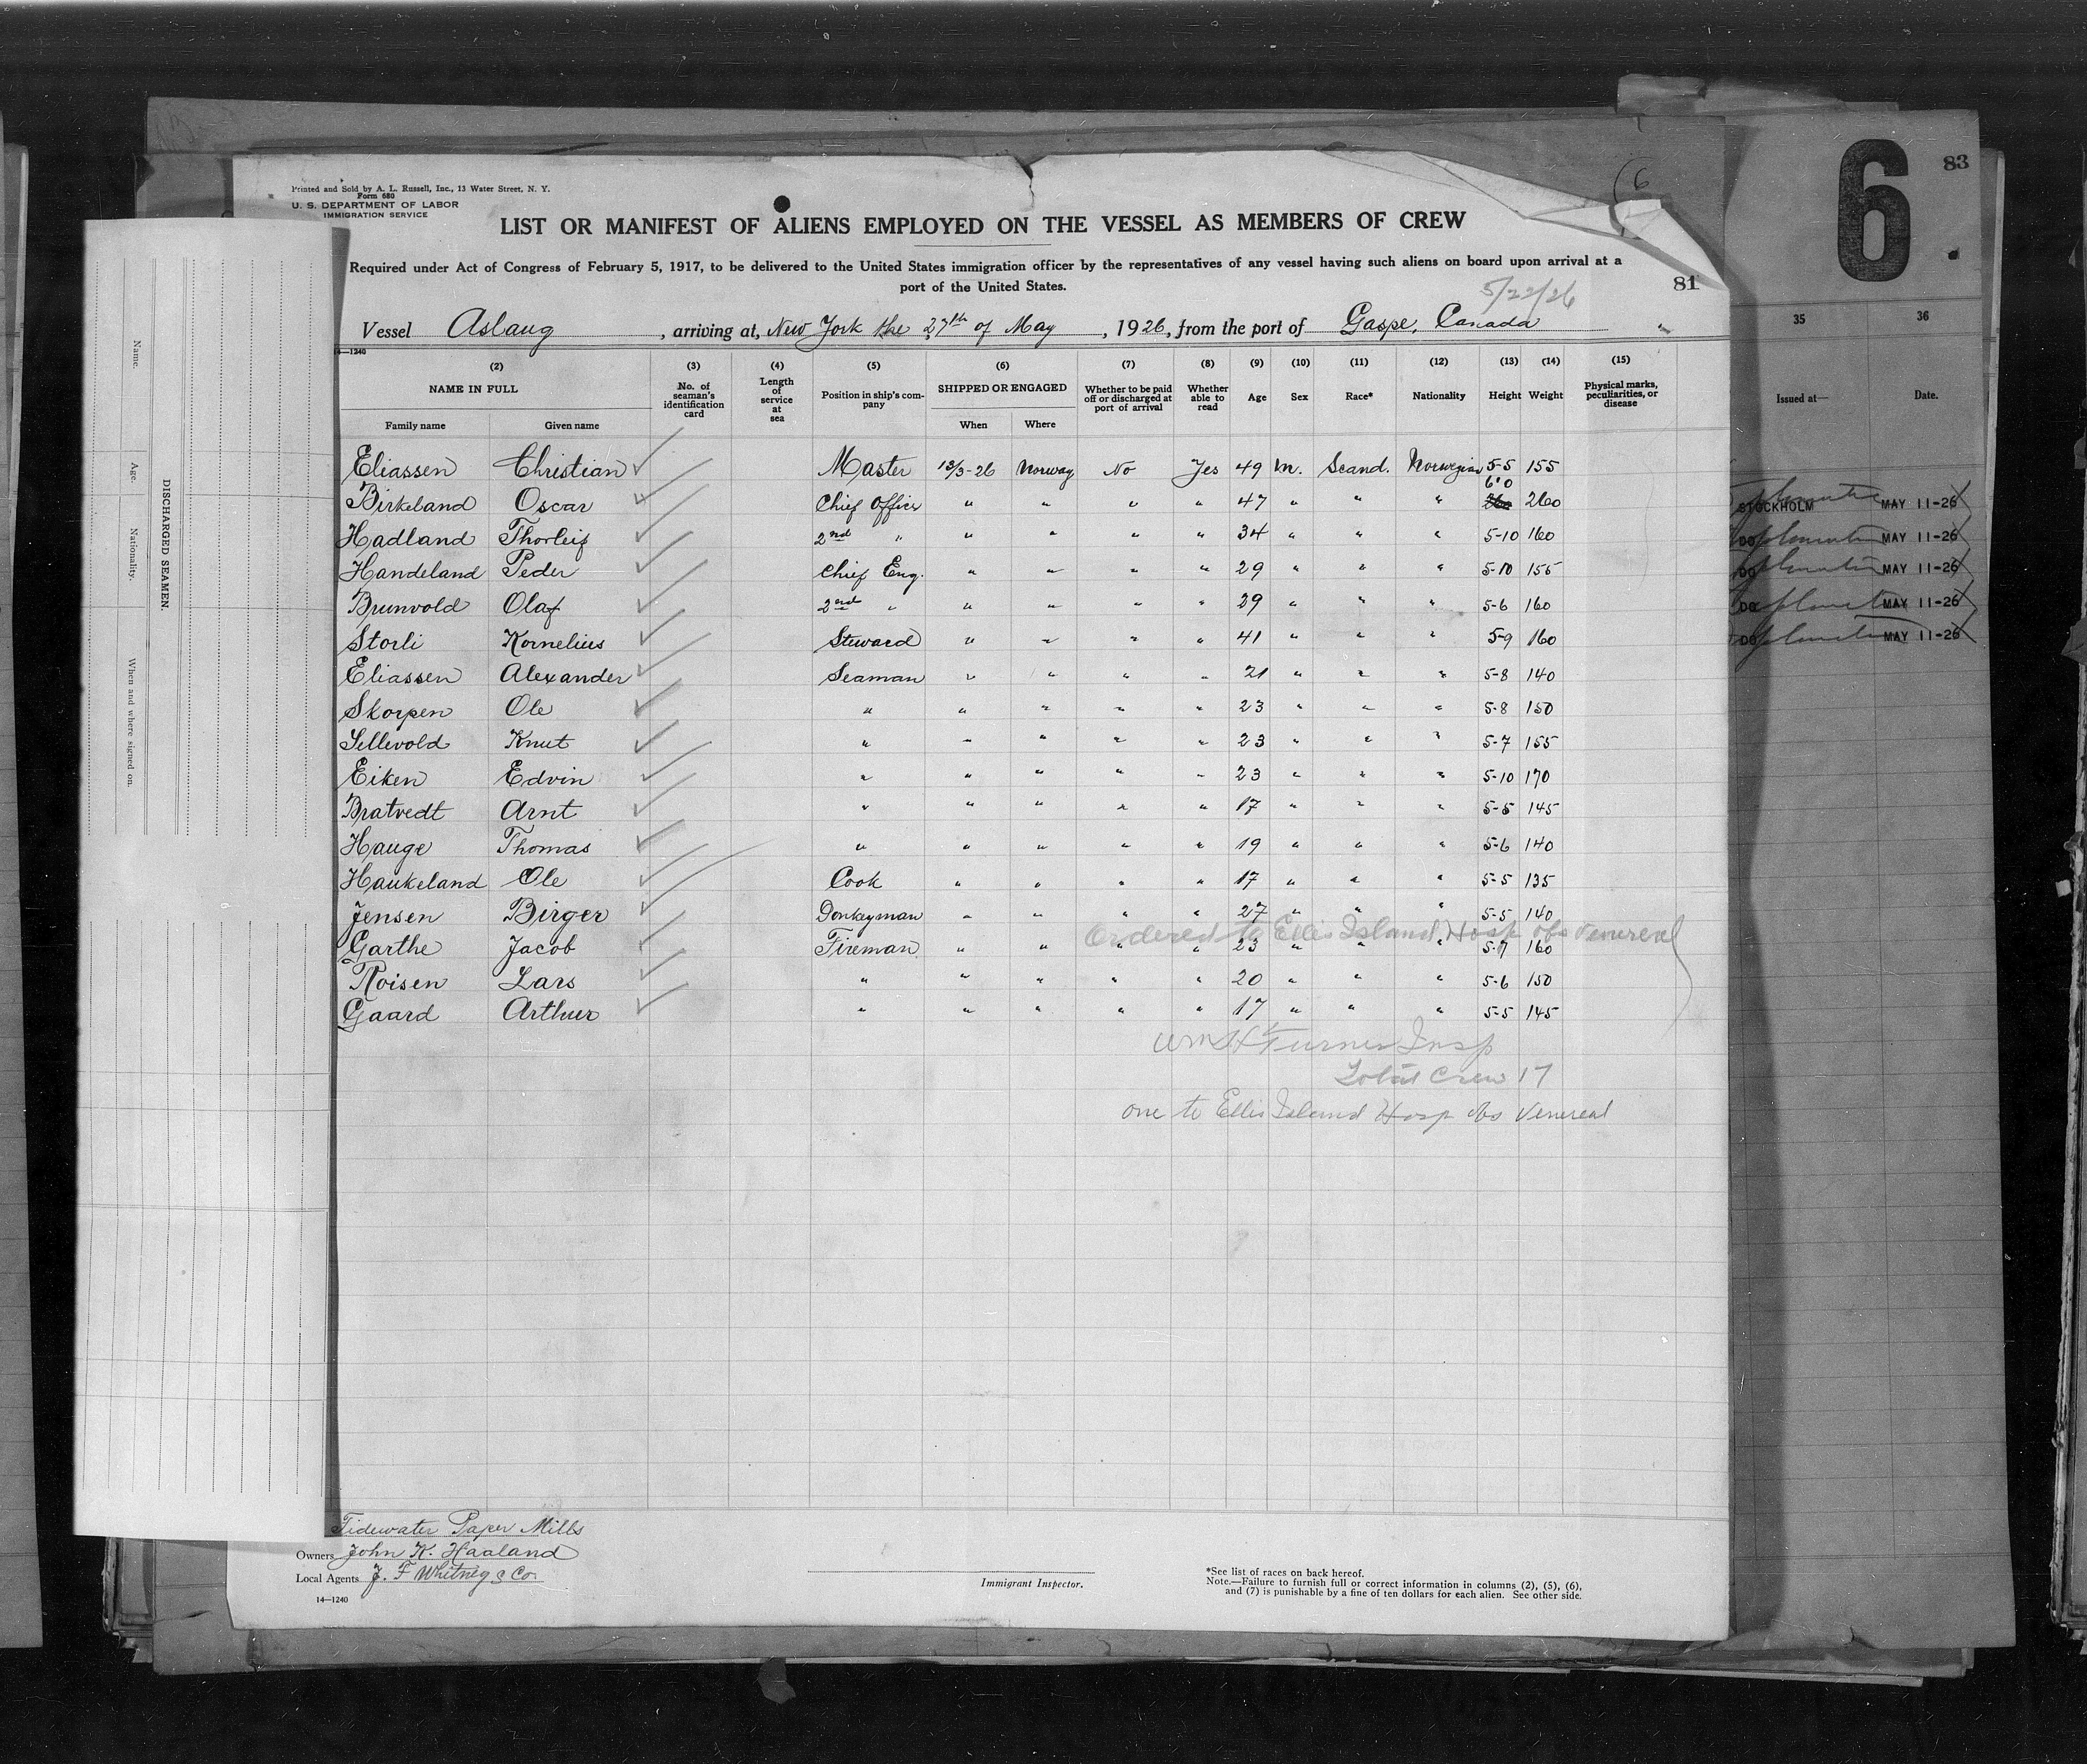 83
6
(6
Printed and Sold by A. L. Russell, Inc., 13 Water Street, N. Y.
Form 680
U. S. DEPARTMENT OF LABOR
IMMIGRATION SERVICE
LIST OR MANIFEST OF ALIENS EMPLOYED ON THE VESSEL AS MEMBERS OF CREW
Required under Act of Congress of February 5, 1917, to be delivered to the United States immigration officer by the representatives of any vessel having such aliens on board upon arrival at a
port of the United States.
81
5/22/26
Vessel Aslaug, arriving at, New York the 27th of May, 1926, from the port of Gaspe, Canada
14—1240
(2) (3) (4) (5) (6) (7) (8) (9) (10) (11) (12) (13) (14) (15)
NAME IN FULL No. of seaman's identification card Length of service at sea Position in ship's company SHIPPED OR ENGAGED Whether to be paid off or discharged at port of arrival Whether able to read Age Sex Race* Nationality Height Weight Physical marks, peculiarities, or disease
Family name Given name When Where
Eliassen Christian Master 13/3-26 Norway No Yes 49 M. Scand. Norwegian 5-5 155
Birkeland Oscar Chief Officer " " " " 47 " " " 6'0 260
Hadland Thorleif 2nd " " " " " 34 " " " 5-10 160
Handeland Peder Chief Eng. " " " " 29 " " " 5-10 155
Brunvold Olaf 2nd " " " " " 29 " " " 5-6 160
Storli Kornelius Steward " " " " 41 " " " 5-9 160
Eliassen Alexander Seaman " " " " 21 " " " 5-8 140
Skorpen Ole " " " " " 23 " " " 5-8 150
Sellevold Knut " " " " " 23 " " " 5-7 155
Eiken Edvin " " " " " 23 " " " 5-10 170
Bratvedt Arnt " " " " " 17 " " " 5-5 145
Hauge Thomas " " " " " 19 " " " 5-6 140
Haukeland Ole Cook " " " " 17 " " " 5-5 135
Jensen Birger Donkeyman " " " " 27 " " " 5-5 140
Ordered to Ellis Island Hosp obs venereal
Garthe Jacob Fireman " " " " 23 " " " 5-7 160
Roisen Lars " " " " " 20 " " " 5-6 150
Gaard Arthur " " " " " 17 " " " 5-5 145
Wm H Turner Insp
Total Crew 17
one to Ellis Island Hosp obs venereal
Tidewater Paper Mills
Owners John K. Haaland
Local Agents J. F Whitney & Co.
14—1240
Immigrant Inspector.
*See list of races on back hereof.
Note.—Failure to furnish full or correct information in columns (2), (5), (6),
and (7) is punishable by a fine of ten dollars for each alien. See other side.
DISCHARGED SEAMEN.
Name. Age. Nationality. When and where signed on.
35 36
Issued at— Date.
STOCKHOLM MAY 11-26
DO MAY 11-26
DO MAY 11-26
DO MAY 11-26
DO MAY 11-26